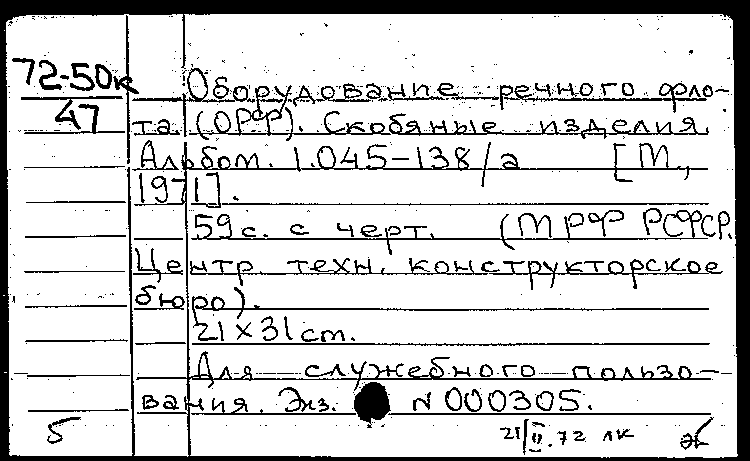 72-50к
47
Оборудование речного фло-
та (ОРФ). Скобяные изделия.
Альбом. 1.045-138/а [М.,
1971].
59с. с черт. (МРФ РСФСР.
Центр. техн. конструкторское
бюро).
21×31 cm.
Для служебного пользо-
вания. Экз. N 000305.
5
21/II.72 лк